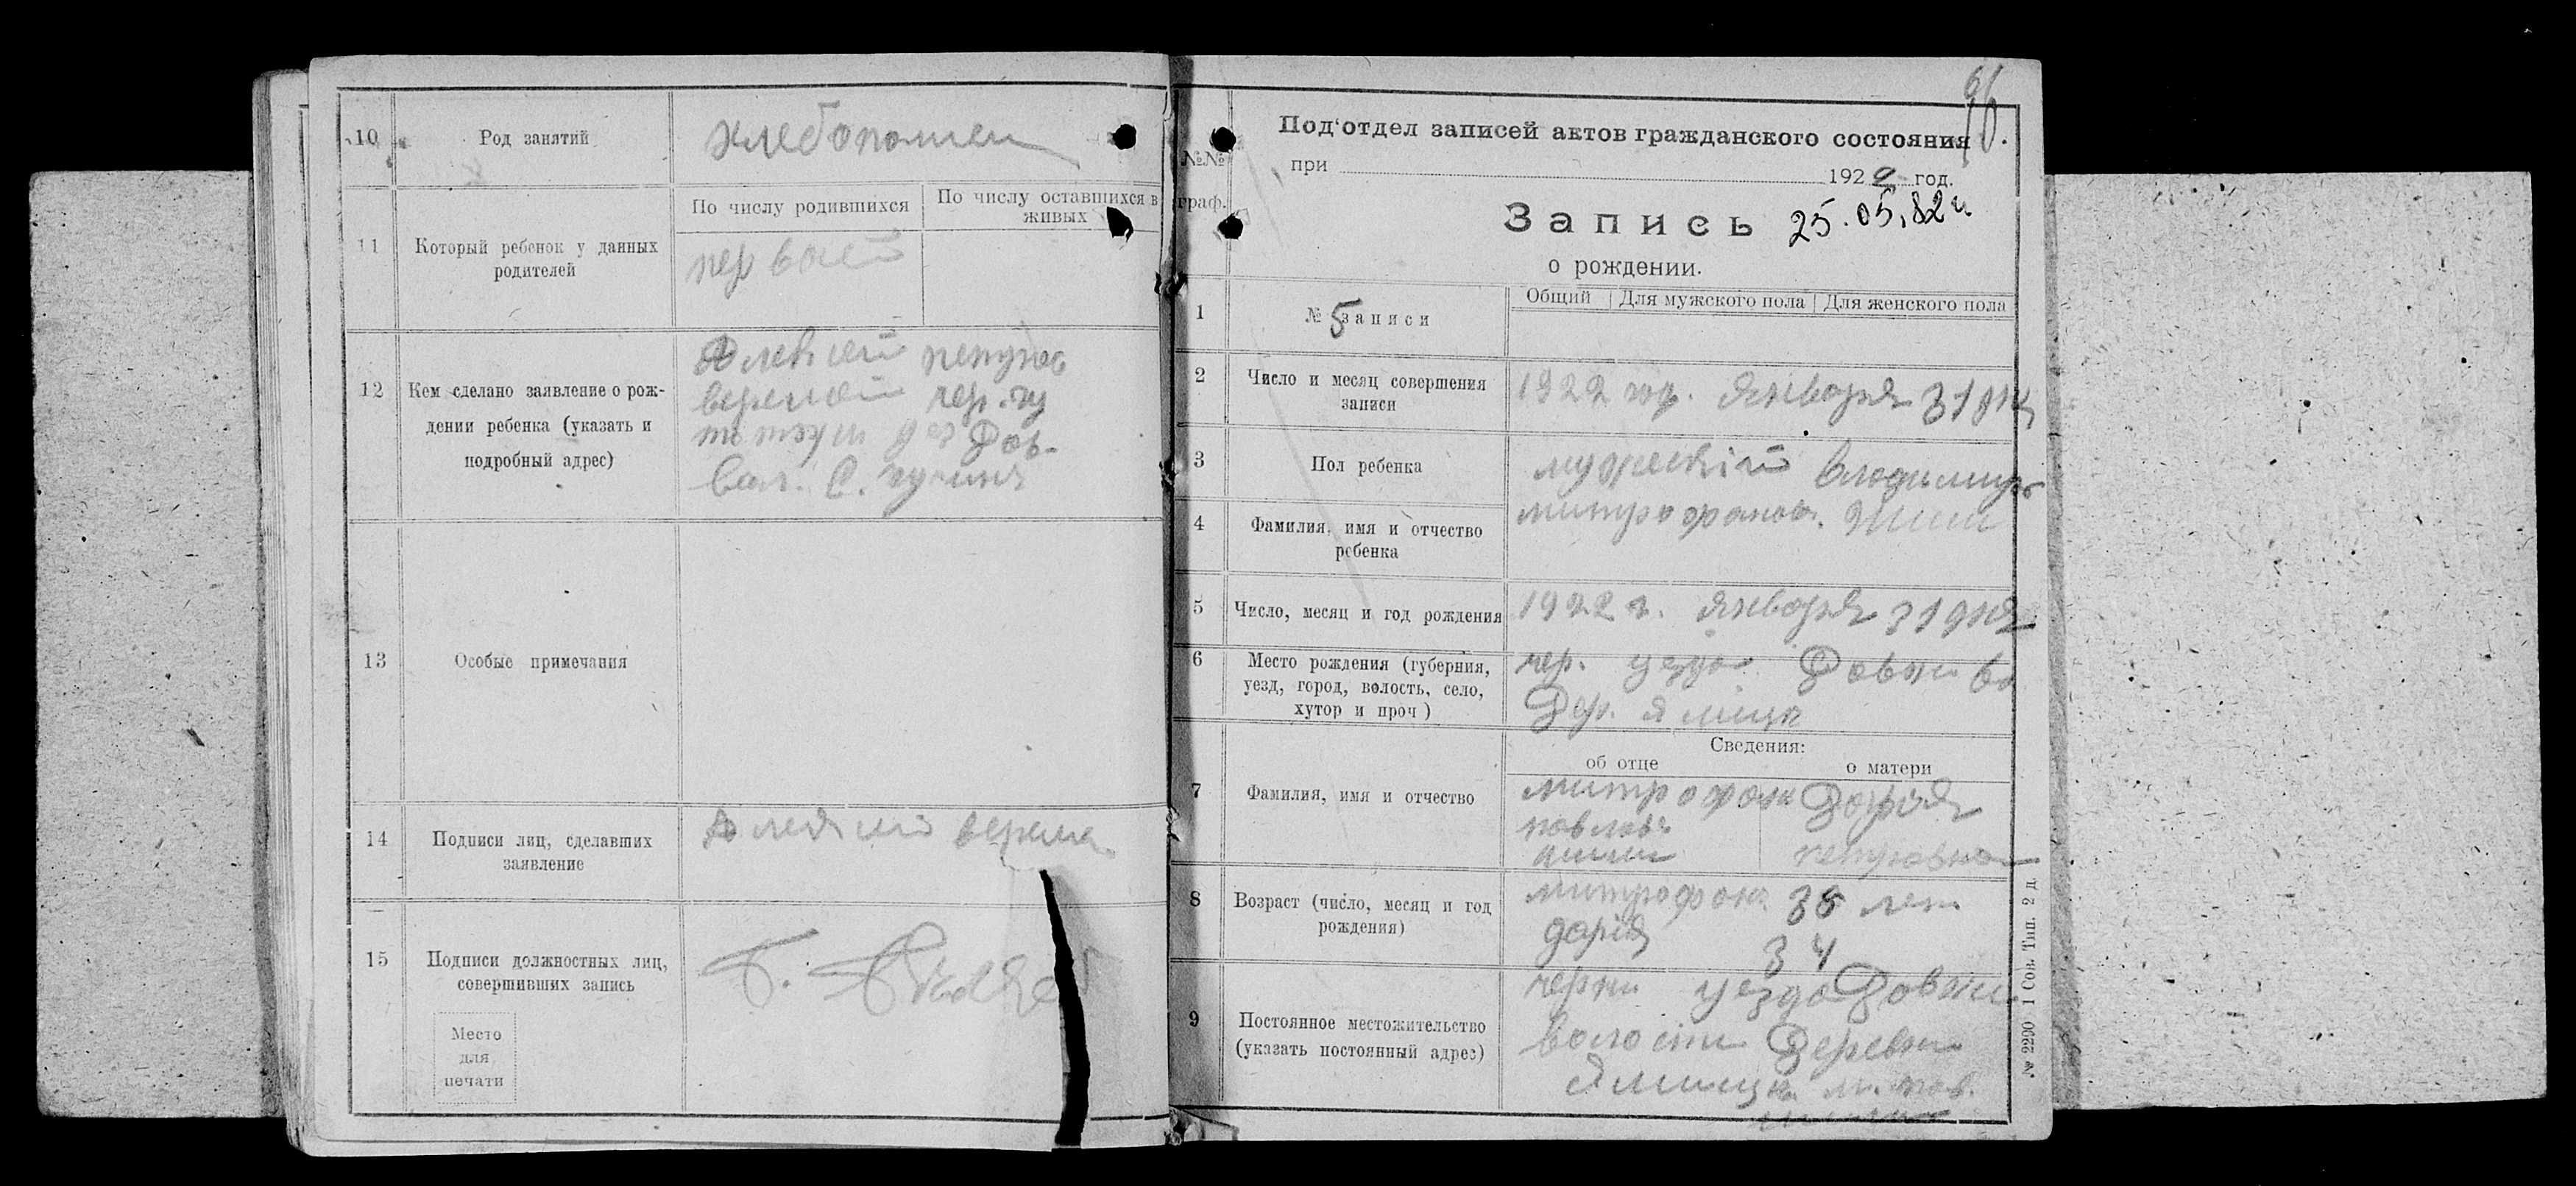 10
Род занятий
хлебопашец
11
Который ребенок у данных
родителей
По числу родившихся
По числу оставшихся в
живых
первый
12
Кем сделано заявление о рож-
дении ребенка (указать и
подробный адрес)
Алексей
Вол. С.
13
Особые примечания
14
Подписи лиц, сделавших
заявление
Алексей
15
Подписи должностных лиц,
совершивших запись
Место
для
печати
66.
Под'отдел записей актов гражданского состояния
№№
граф.
при 1922 год.
Запись 25.05.82 г.
о рождении.
Общий Для мужского пола Для женского пола
1
№ 5 записи
2
Число и месяц совершения
записи
1922 год. Января 31 дня
3
Пол ребенка
мужеский Владимир
4
Фамилия, имя и отчество
ребенка
митрофанов.
5
Число, месяц и год рождения
1922 г. Января 31 дня
6
Место рождения (губерния,
уезд, город, волость, село,
хутор и проч)
чер. уезда Довжи во
Дер. Ямищи
Сведения:
об отце
о матери
7
Фамилия, имя и отчество
митрофан
павлов
Дария
петровна
8
Возраст (число, месяц и год
рождения)
митрофан 38 лет
дария 34
9
Постоянное местожительство
(указать постоянный адрес)
черни уезда Довжи
волости Деревни
Ямищи м. пов.
№ 2290 1 Сов. Тип. 2 д.